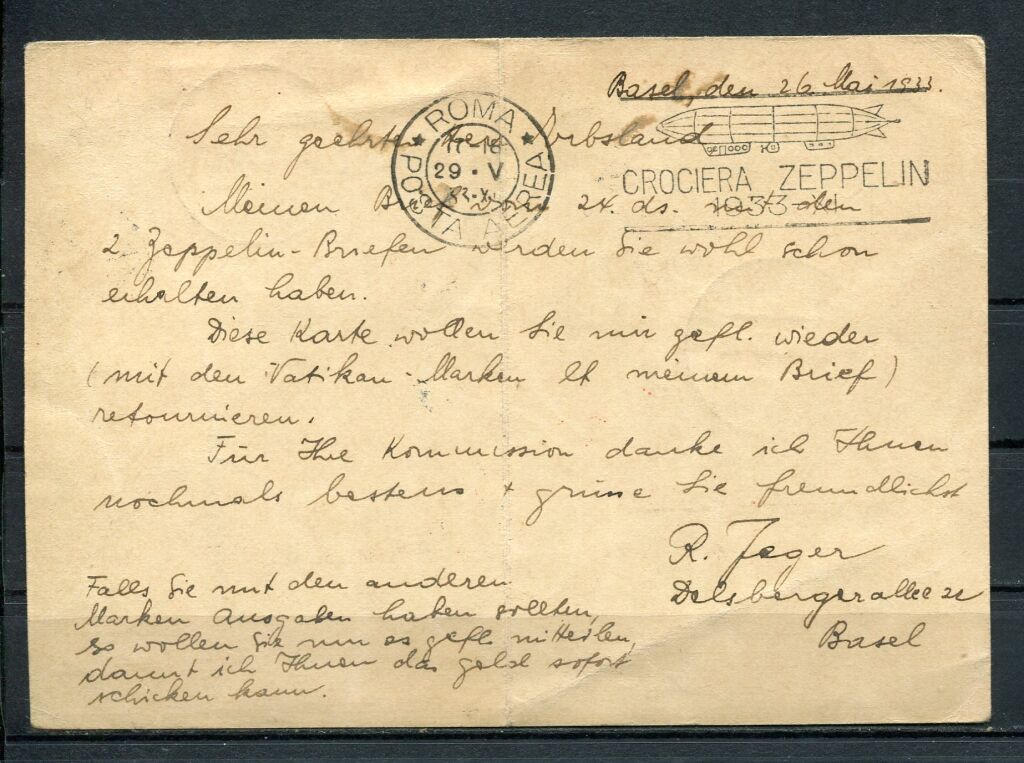 Basel, den 26. Mai 1933.
Sehr geehrter Herr
ROMA
17-18
29 · V
POSTA AEREA
CROCIERA ZEPPELIN
1933
Meinen Brief vom 24. ds. mit den
2 Zeppelin-Briefen werden Sie wohl schon
erhalten haben.
Diese Karte wollen Sie mir gefl. wieder
(mit den Vatikan-Marken lt meinem Brief)
retournieren.
Für Ihre Kommission danke ich Ihnen
nochmals bestens + grüsse Sie freundlichst
R. Jeger
Delsbergerallee
Basel
Falls Sie mit den anderen
Marken Ausgaben haben sollten,
so wollen Sie mir es gefl. mitteilen,
damit ich Ihnen das Geld sofort
schicken kann.